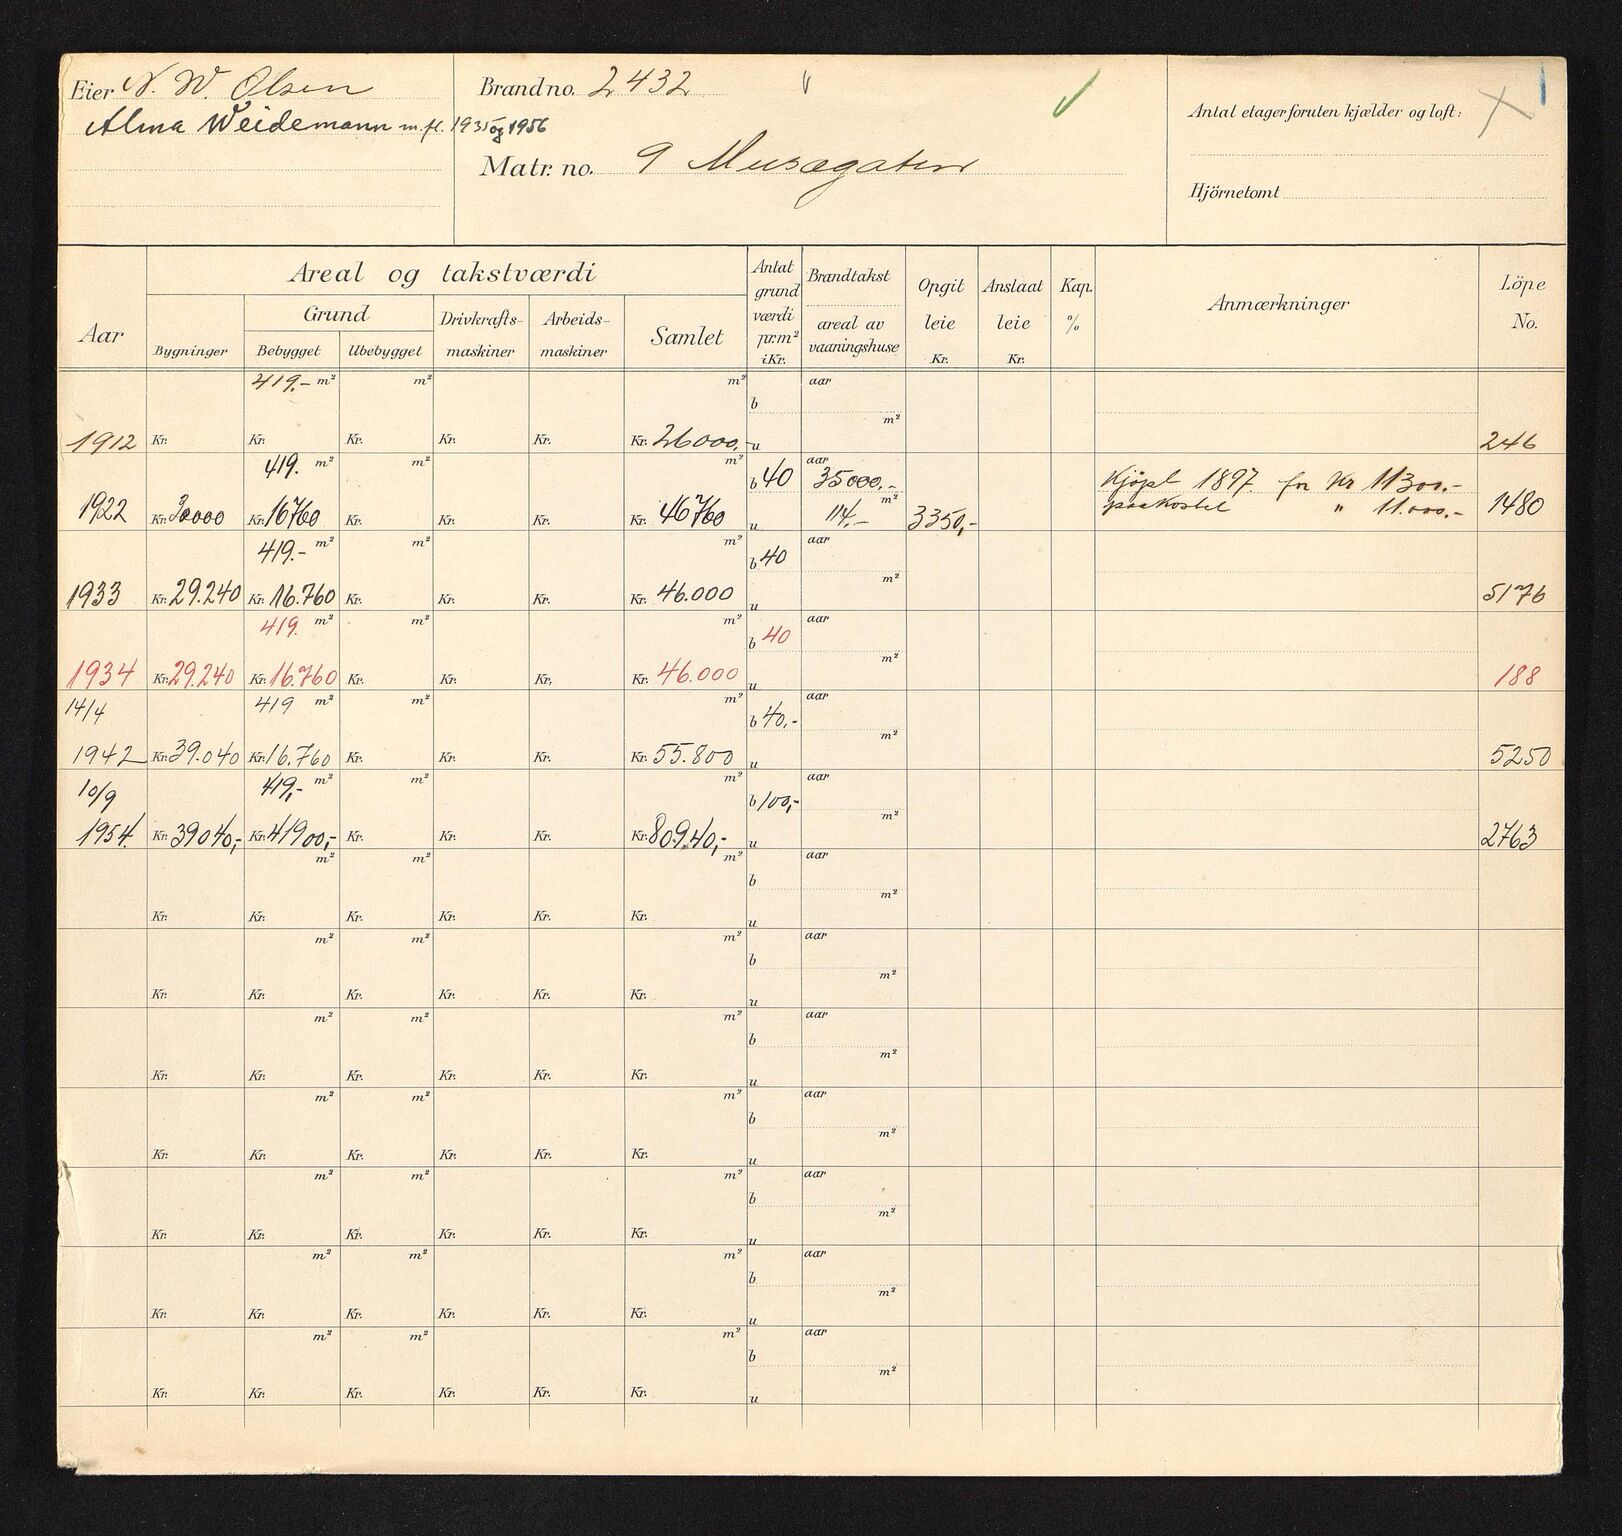 Eier N. W. Olsen
Alma Weidemann m.fl. 1935 og 1956
Brand no. 2432
Matr. no. 9 Musægaten
Antal etager foruten kjælder og loft:
Hjörnetomt
Aar
Areal og takstværdi
Bygninger
Grund
Bebygget Ubebygget
Drivkrafts-
maskiner
Arbeids-
maskiner
Samlet
Antat
grund
værdi
pr. m²
i Kr.
Brandtakst
areal av
vaaningshuse
Opgit
leie
Kr.
Anslaat
leie
Kr.
Kap.
%
Anmærkninger
Löpe
No.
419.- m² m² m² b aar
m²
1912 Kr. Kr. Kr. Kr. Kr. Kr. 26000.- u 246
419. m² m² m² b 40 aar 35000.- Kjöpt 1897. for Kr 11300.-
1922 Kr. 30000 Kr. 16760 Kr. Kr. Kr. Kr. 46760 u 114.- m² 3350,- paakostet " 11.000.- 1480
419.- m² m² m² b 40 aar
m²
1933 Kr. 29.240 Kr. 16.760 Kr. Kr. Kr. Kr. 46.000 u 5176
419. m² m² m² b 40 aar
m²
1934 Kr. 29.240 Kr. 16.760 Kr. Kr. Kr. Kr. 46.000 u 188
14/4 419 m² m² m² b 40,- aar
m²
1942 Kr. 39.040 Kr. 16.760 Kr. Kr. Kr. Kr. 55.800 u 5250
10/9 419,- m² m² m² b 100,- aar
m²
1954. Kr. 39040,- Kr. 41900,- Kr. Kr. Kr. Kr. 80940,- u 2763
m² m² m² b aar
m²
Kr. Kr. Kr. Kr. Kr. Kr. u
m² m² m² b aar
m²
Kr. Kr. Kr. Kr. Kr. Kr. u
m² m² m² b aar
m²
Kr. Kr. Kr. Kr. Kr. Kr. u
m² m² m² b aar
m²
Kr. Kr. Kr. Kr. Kr. Kr. u
m² m² m² b aar
m²
Kr. Kr. Kr. Kr. Kr. Kr. u
m² m² m² b aar
m²
Kr. Kr. Kr. Kr. Kr. Kr. u
m² m² m² b aar
m²
Kr. Kr. Kr. Kr. Kr. Kr. u